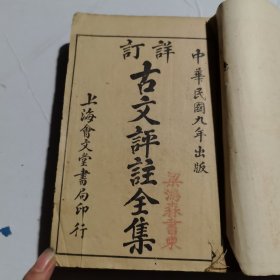 中華民國九年出版
詳訂
古文評註全集
上海會文堂書局印行